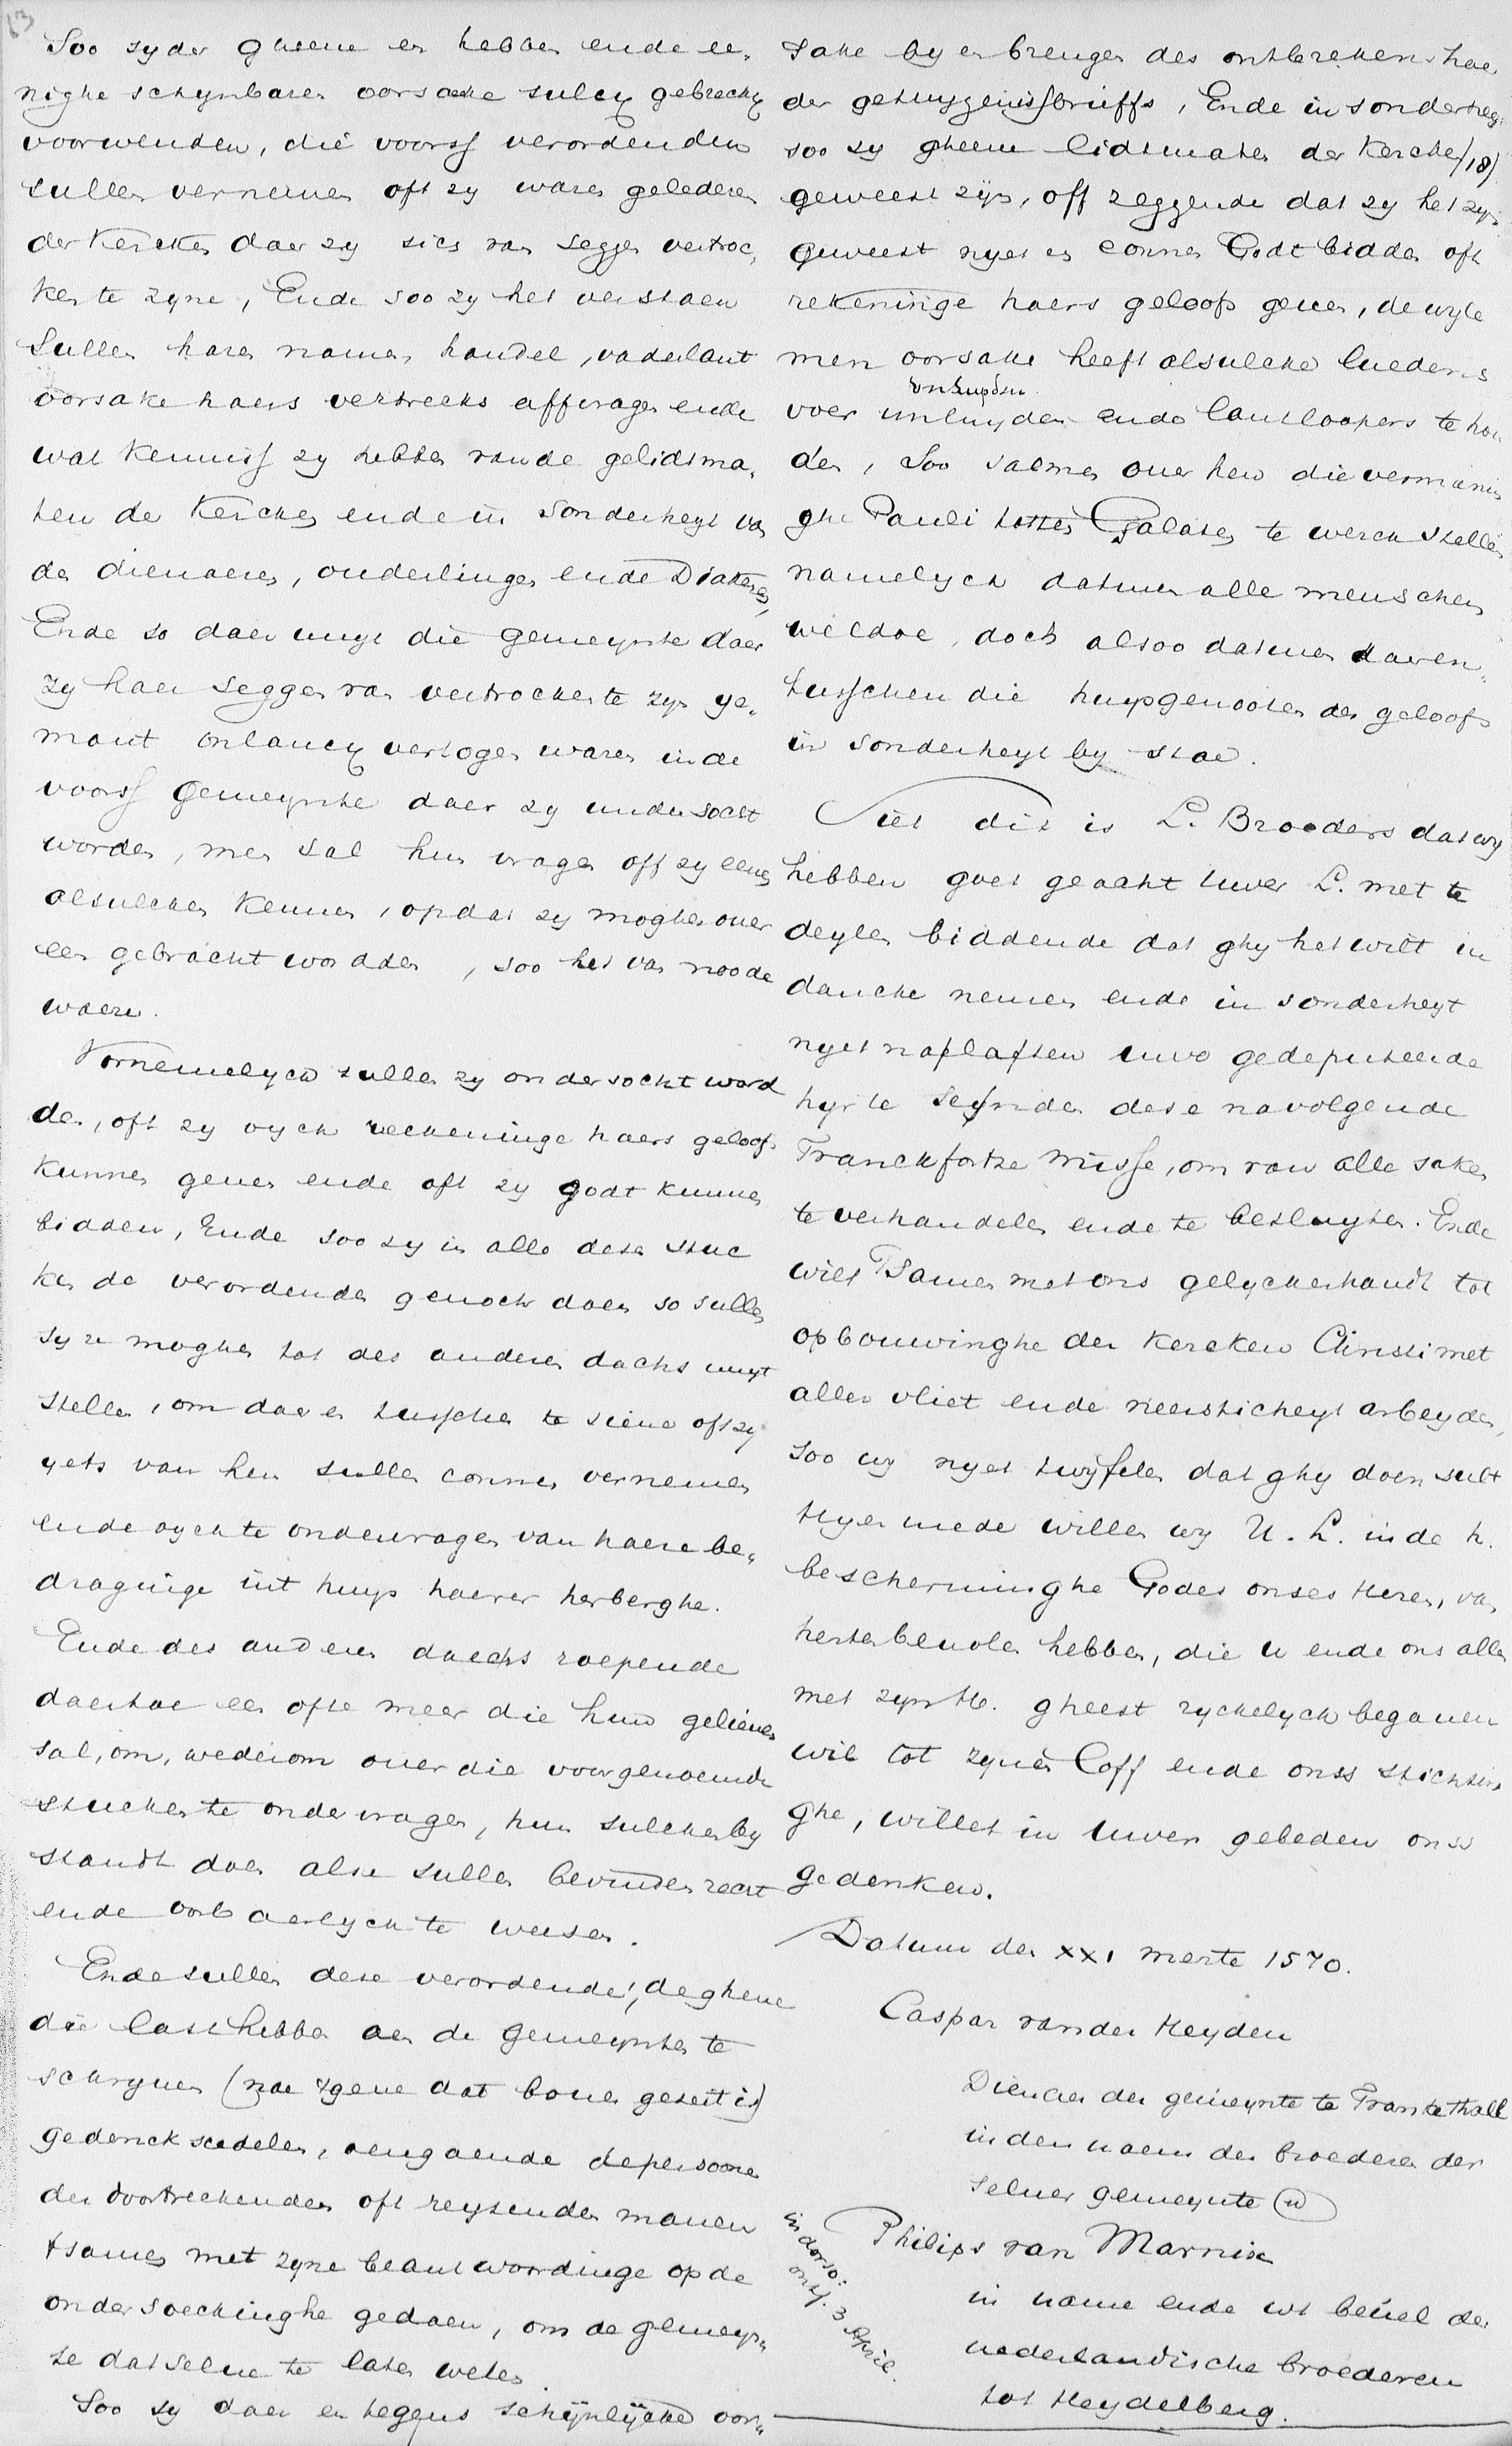 13
Soo sy der gheene en hebben ende ee„
nighe schynbaren oorsaeke sulcx gebreckx
voorwenden, die voorss verordenden
sullen vernemen oft zy waren gelederen
der Kercken daer zy sich van seggen vertroc„
ken te zyne, Ende soo zy het verstaen
Sullen haren namen, handel, vaderlant
oorsake haers vertrecks affvragen ende
wat kennisse zy hebben vande gelidtma„
ten der Kercken ende in sonderheyt van
den dienaeren, ouderlingen ende Diakenen,
Ende so daer uuyt die gemeynte daer
zy haer seggen van vertrocken te zyn ye„
mant onlancx vertogen waren in de
voorss gemeynte daer zy undersocht
worden, men sal hun vragen off zy eenen
alsulcken kennen, op dat zy moghen over
een gebracht wordden, soo het van noode
waere.
Vornemelyck sullen zy ondersocht word
den, oft zy oyck reckeninge haers geloofs
kunnen geven ende oft zy godt kunnen
bidden, Ende soo zy in alle dese stuc
ken de verordenden genoch doen so sullen
sy ze moghen tot des anderen dachs uuyt
stellen, om daer en tusschen te siene oft zy
yets van hen sullen connen vernemen
ende oyck te ondervragen van haere be„
draginge int huys haerer herberghe.
Ende des anderen daechs roepende
daertoe een ofte meer die hun gelieven
sal, om, wederom over die voorgenoemde
stucken te ondervragen, hun sulcken by
standt doen alse sullen bevinden recht
ende oorbaerlyck te wesen.
Ende sullen dese verordende, deghene
die last hebben aen de gemeynten te
schryven (nae tgene dat boven geseit is)
gedenckscedelen, aengaende de persoone
der doortreckenden oft reysenden manen
tsamen met zyne beantwoordinge op de
ondersoeckinghe gedaen, om de gemeyn„
te datselve te laten weten.
Soo sy daer en tegens schÿnlÿcke oor„
sake by en brengen des ontbrekens hae
der getuygenissbrieffs, Ende in sonderheyt
soo zy gheene lidtmaten der Kercken /18)
geweest zijn, off zeggende dat zy het zyn
geweest nyet en connen Godt bidden oft
rekeninge haers geloofs geven, dewyle
men oorsake heeft alsulcke luedens
voer unluyden ende lantloopers te hou
den, Soo salmen over hen die vermanin
ghe Pauli totten Galaten te werck stellen
namelyck datmen alle menschen
weldoe, doch alsoo datmen daeren„
tusschen die huysgenooten des geloofs
in sonderheyt by stae.
Siet dit is L. Broeders dat wy
hebben goet geacht uwer L. met te
deylen biddende dat ghy het wilt in
dancke nemen ende in sonderheyt
nyet naelaeten uwe gedeputeerde
hyr te seynden dese navolgende
Franckfortze misse, om van alle saken
te verhandelen ende te besluyten. Ende
wilt Tsamen met ons gelyckerhandt tot
opbouwinghe der Kercken Christi met
allen vliet ende neersticheyt arbeyden,
soo wy nyet twyfelen dat ghy doen sult
Hyermede willen wy U. L. in de h.
bescherminghe Godes onses Heren, van
herten bevolen hebben, die u ende ons allen
met zyn H. gheest ryckelyck begaven
wil tot zynen Loff ende onss stichtin
ghe, willet in uwen gebeden onss
gedenken.
Datum den xxi merte 1570.
Caspar vander Heyden
Dienaer der gemeynte te Frankethall
in den naem der broederen der
selver gemeynte (w)
in dorso:
ontf. 3 April.
Philips van Marnix
in name ende wt bevel der
nederlandische broederen
tot Heydelberg.